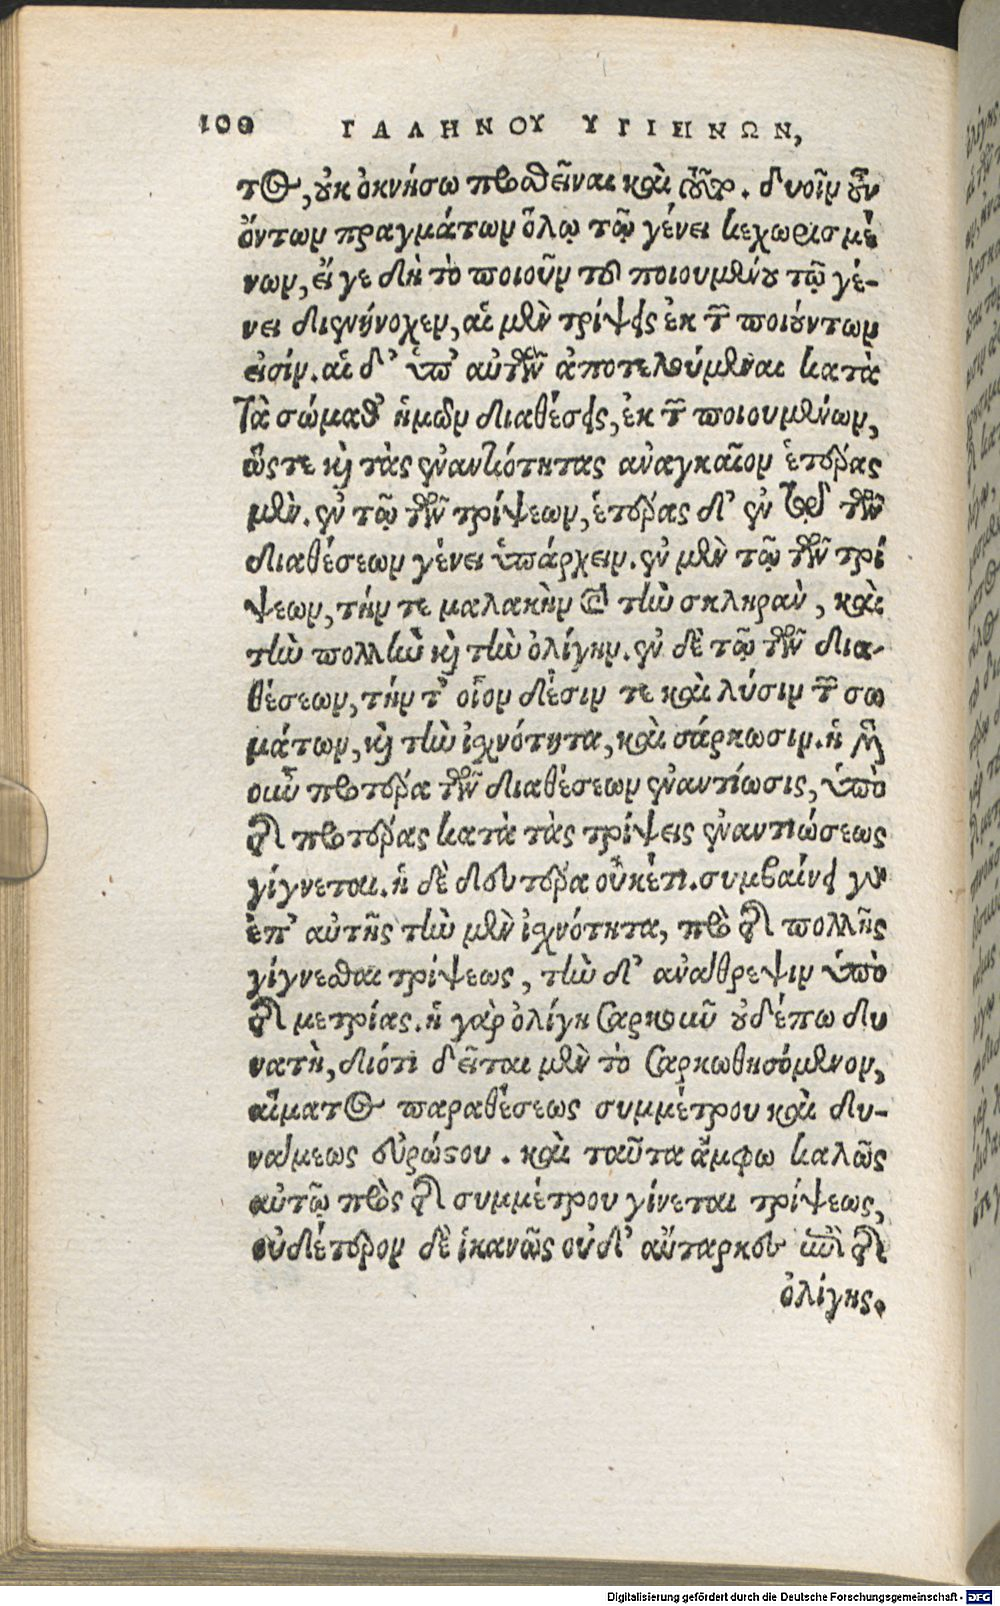 100 ΓΑΛΗΝΟΥ ΥΓΙΕΙΝΩΝ,
τος, οὐκ ὀκνήσω προσθεῖναι καὶ νῦν. δυοῖν οὖν
ὄντων πραγμάτων ὅλῳ τῷ γένει κεχωρισμέ
νων, εἴ γε δὴ τὸ ποιοῦν τοῦ ποιουμένου τῷ γέ-
νει διενήνοχεν, αἱ μὲν τρίψεις ἐκ τῶν ποιούντων
εἰσίν. αἱ δ' ὑπ' αὐτῶν ἀποτελούμεναι κατὰ
τὰ σώμαθ' ἡμῶν διαθέσεις, ἐκ τῶν ποιουμένων,
ὥστε καὶ τὰς ἐναντιότητας ἀναγκαῖον ἑτέρας
μὲν. ἐν τῷ τῶν τρίψεων, ἑτέρας δ' ἐν τῷ τῶν
διαθέσεων γένει ὑπάρχειν. ἐν μὲν τῷ τῶν τρί
ψεων, τήν τε μαλακὴν καὶ τὴν σκληρὰν, καὶ
τὴν πολλὴν καὶ τὴν ὀλίγην. ἐν δὲ τῷ τῶν δια-
θέσεων, τήν τ' οἷον δέσιν τε καὶ λύσιν τῶν σω
μάτων, καὶ τὴν ἰχνότητα, καὶ σάρκωσιν. ἡ μὲν
οὖν προτέρα τῶν διαθέσεων ἐναντίωσις, ὑπὸ
τῆς προτέρας κατὰ τὰς τρίψεις ἐναντιώσεως
γίγνεται. ἡ δὲ δευτέρα οὐκέτι. συμβαίνει γὰρ
ἐπ' αὐτῆς τὴν μὲν ἰχνότητα, πρὸ τῆς πολλῆς
γίγνεσθαι τρίψεως, τὴν δ' ἀνάθρεψιν ὑπὸ
τῆς μετρίας. ἡ γὰρ ὀλίγη σαρκοῦν οὐδέπω δυ
νατὴ, διότι δεῖται μὲν τὸ σαρκωθησόμενον,
αἵματος παραθέσεως συμμέτρου καὶ δυ-
νάμεως εὐρώστου. καὶ ταῦτα ἄμφω καλῶς
αὐτῷ πρὸς τῆς συμμέτρου γίνεται τρίψεως,
οὐδέτερον δὲ ἱκανῶς οὐδ' αὔταρκευ ἐπὶ τῆς
ὀλίγης.
Digitalisierung gefördert durch die Deutsche Forschungsgemeinschaft - DFG